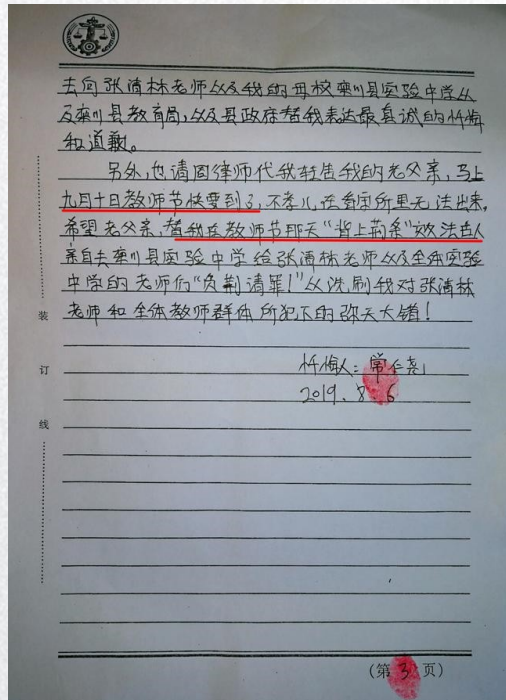 去向张清林老师以及我的母校栾川县实验中学以
及栾川县教育局,以及县政府替我表达最真诚的忏悔
和道歉。
另外,也请因律师代我转告我的老父亲,马上
九月十日教师节快要到了,不孝儿在看守所里无法出来,
希望老父亲,替我在教师节那天“背上荆条”效法古人
亲自去栾川县实验中学给张清林老师以及全体实验
中学的老师们“负荆请罪!”以洗刷我对张清林
老师和全体教师群体所犯下的弥天大错!
忏悔人:常仁尧
2019.8.6
装
订
线
(第3页)